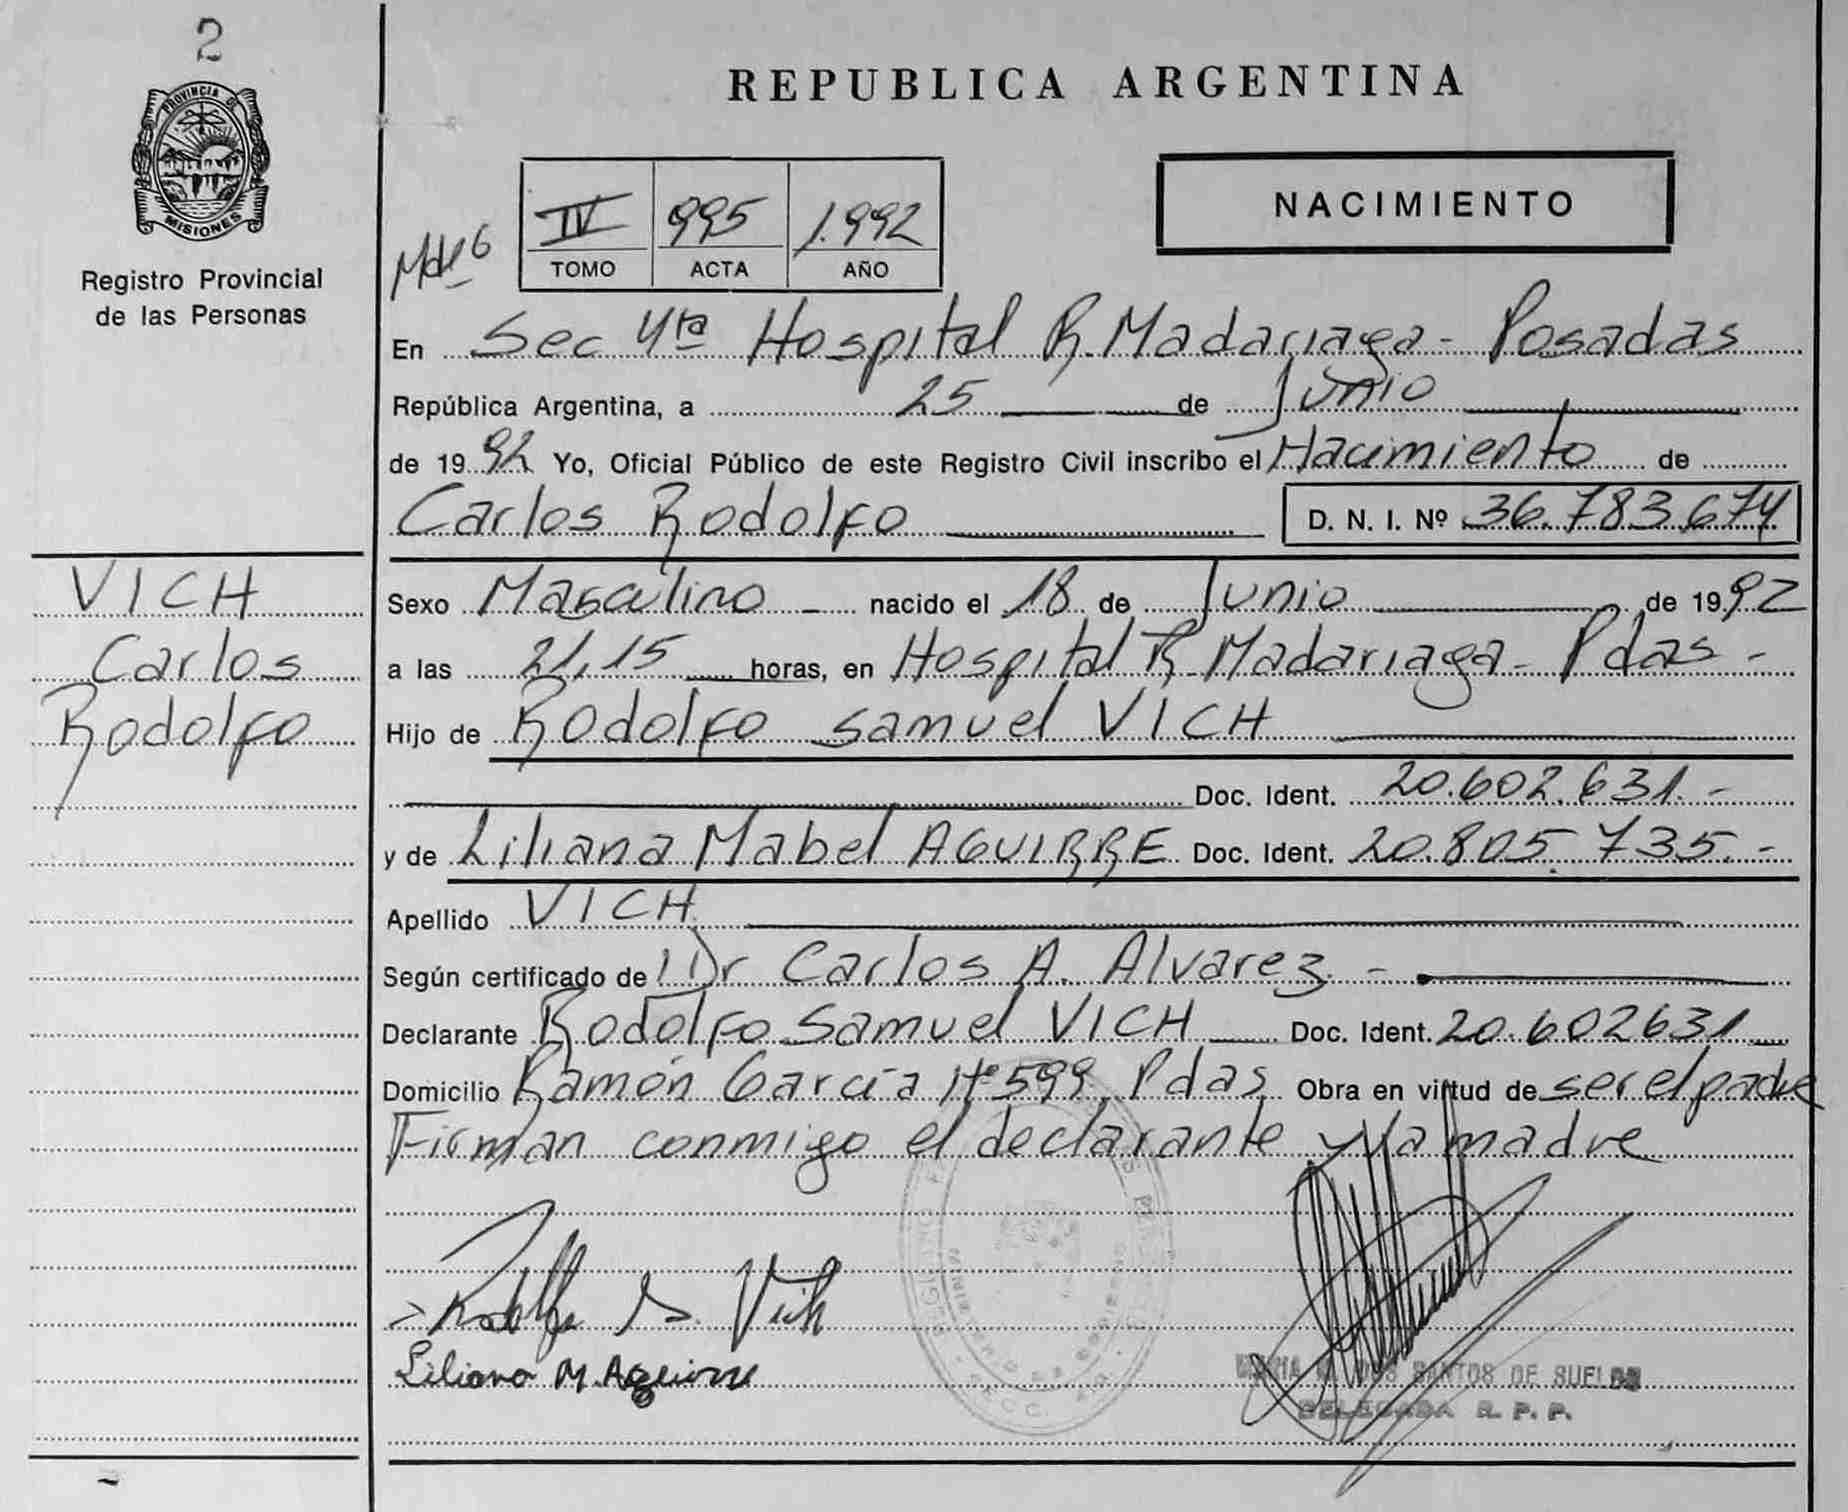 2
PROVINCIA DE
MISIONES
Registro Provincial
de las Personas
VICH
Carlos
Rodolfo
REPUBLICA ARGENTINA
IV 995 1.992
TOMO ACTA AÑO
NACIMIENTO
En Sec 4ta Hospital R. Madariaga - Posadas
República Argentina, a 25 de Junio
de 1992 Yo, Oficial Público de este Registro Civil inscribo el Nacimiento de
Carlos Rodolfo D. N. I. Nº 36.783.674
Sexo Masculino nacido el 18 de Junio de 1992
a las 21,15 horas, en Hospital R. Madariaga - Pdas -
Hijo de Rodolfo Samuel VICH
Doc. Ident. 20.602.631.-
y de Liliana Mabel AGUIRRE Doc. Ident. 20.805.735.-
Apellido VICH
Según certificado de Dr Carlos A. Alvarez. -
Declarante Rodolfo Samuel VICH Doc. Ident. 20.602631
Domicilio Ramón García Nº 599, Pdas Obra en virtud de ser el padre
Firman conmigo el declarante y la madre
Rodolfo S. Vich
Liliana M. Aguirre
SANTOS DE
DELEGADA R. P. P.